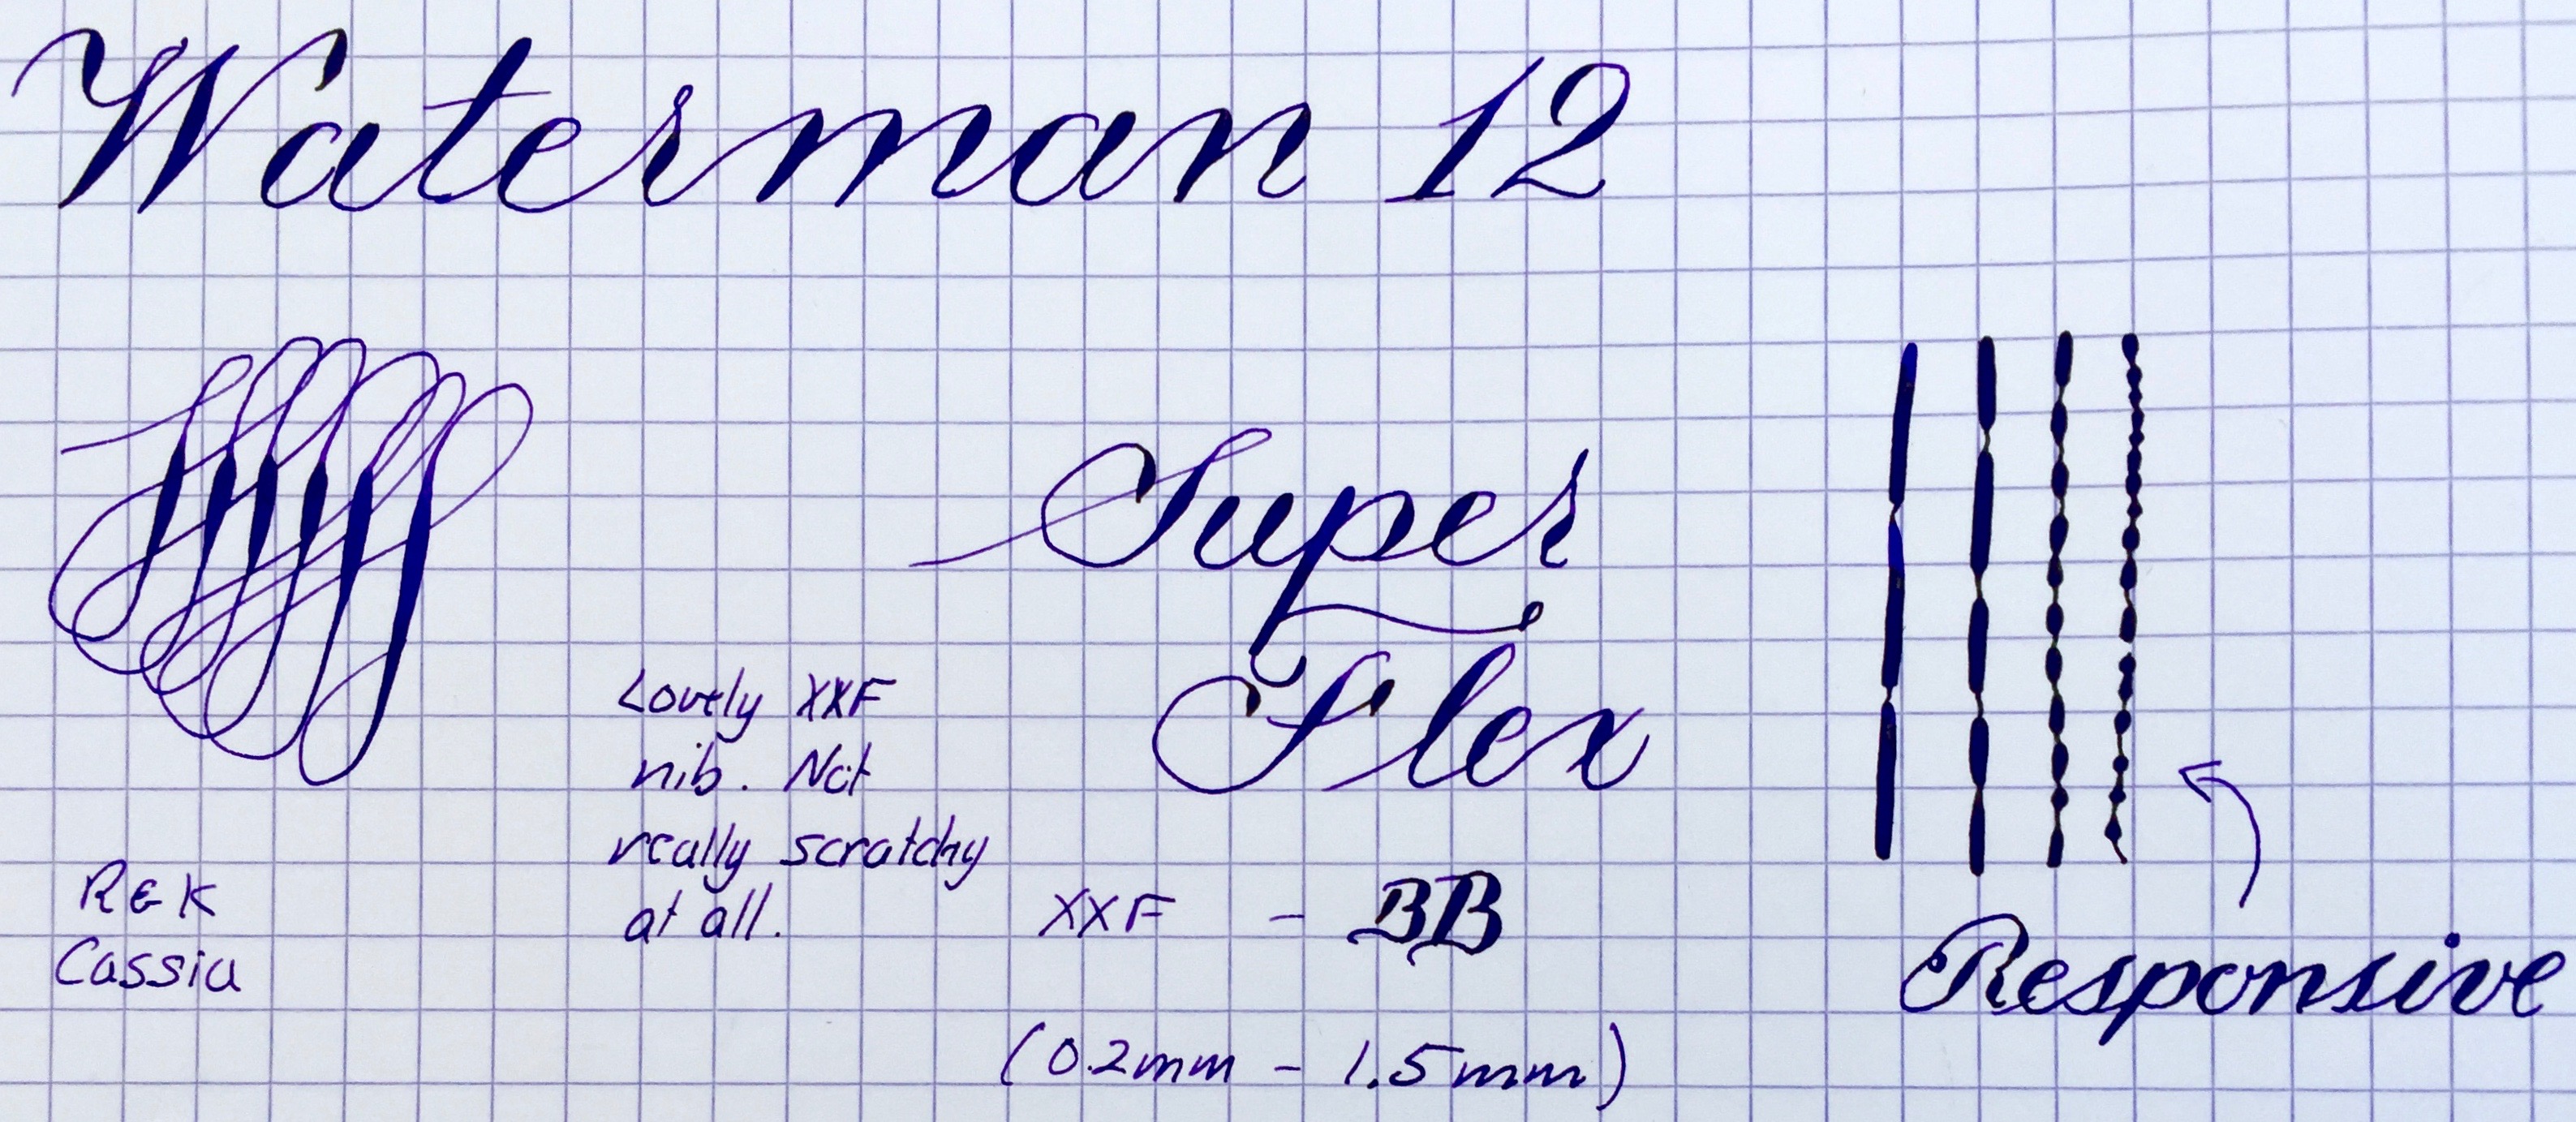 Waterman 12
Super
Flex
Lovely XXF
nib. Not
really scratchy
at all.
R & K
Cassia
XXF - BB
(0.2mm - 1.5mm)
Responsive